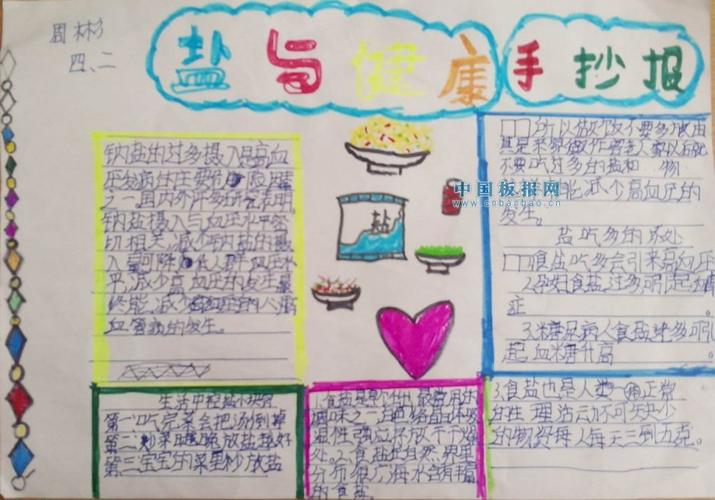 周林彬
四、二
盐与健康手抄报
钠盐的过多摄入是高血
压发病的主要危险因素
之一,国内外许多研究表明,
钠盐摄入与血压水平密
切相关,减少钠盐的摄
入量可降低人群血压水
平,减少高血压的发生最
终能减少高血压的心脑
血管病的发生。
盐
所以做饭不要多放盐
不要吃过多的盐和物
能减少高血压的
发生。
盐吃多的坏处
食盐吃多会引来高血压
2.孕妇食盐过多可引起
症
3.糖尿病人食盐过多可引
起血糖升高
生活中控盐小秘密
第一:吃完菜会把汤倒掉
第二:炒菜晚放盐好
第三:宝宝的菜里少放盐
1.食盐是最常用的
调味之一
处。2.食盐在自然界里
分布很广,海水含有丰富
的食盐。
3.食盐也是人类正常
的生理活动不可缺少
的物资每人每天三到五克。
中国板报网
www.cnbanbao.cn